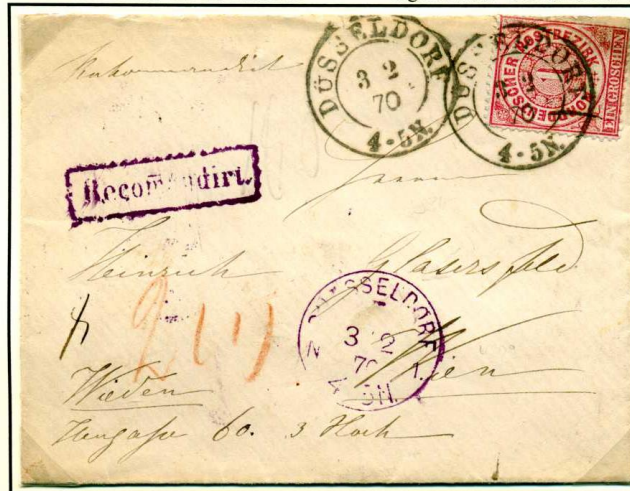 Rekommandirt
DÜSSELDORF
3 2
70
4-5N.
DÜSSELDORF
4-5N.
NORDDEUTSCHER POSTBEZIRK
1
EIN GROSCHEN
Recomandirt.
Herrn
Heinrich Glasersfeld
DUESSELDORF
3 2
70
Wien
Wieden
60. 3 Stock